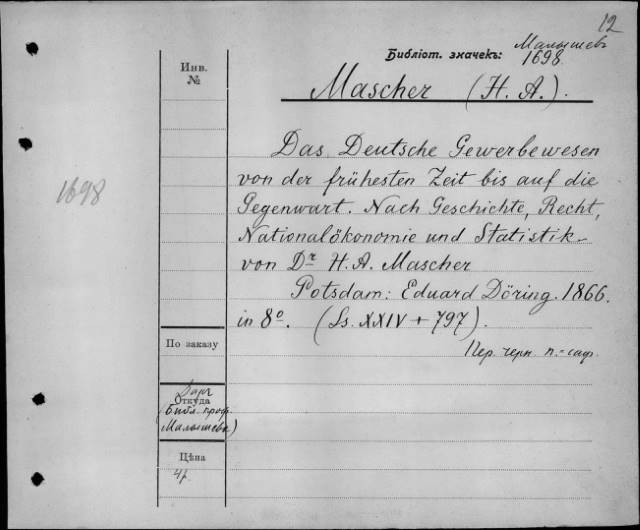 12
Малышевъ
Библіот. значекъ: 1698.
Инв.
№
Mascher (H. A.).
Das Deutsche Gewerbewesen
von der frühesten Zeit bis auf die
Gegenwart. Nach Geschichte, Recht,
Nationalökonomie und Statistik
von Dr H. A. Mascher
Potsdam: Eduard Döring. 1866.
in 8°. (Ss. XXIV + 797).
Пер. черн. п.-саф.
1698
По заказу
Даръ
Откуда
(Библ. проф.
Малышева)
Цѣна
4р.